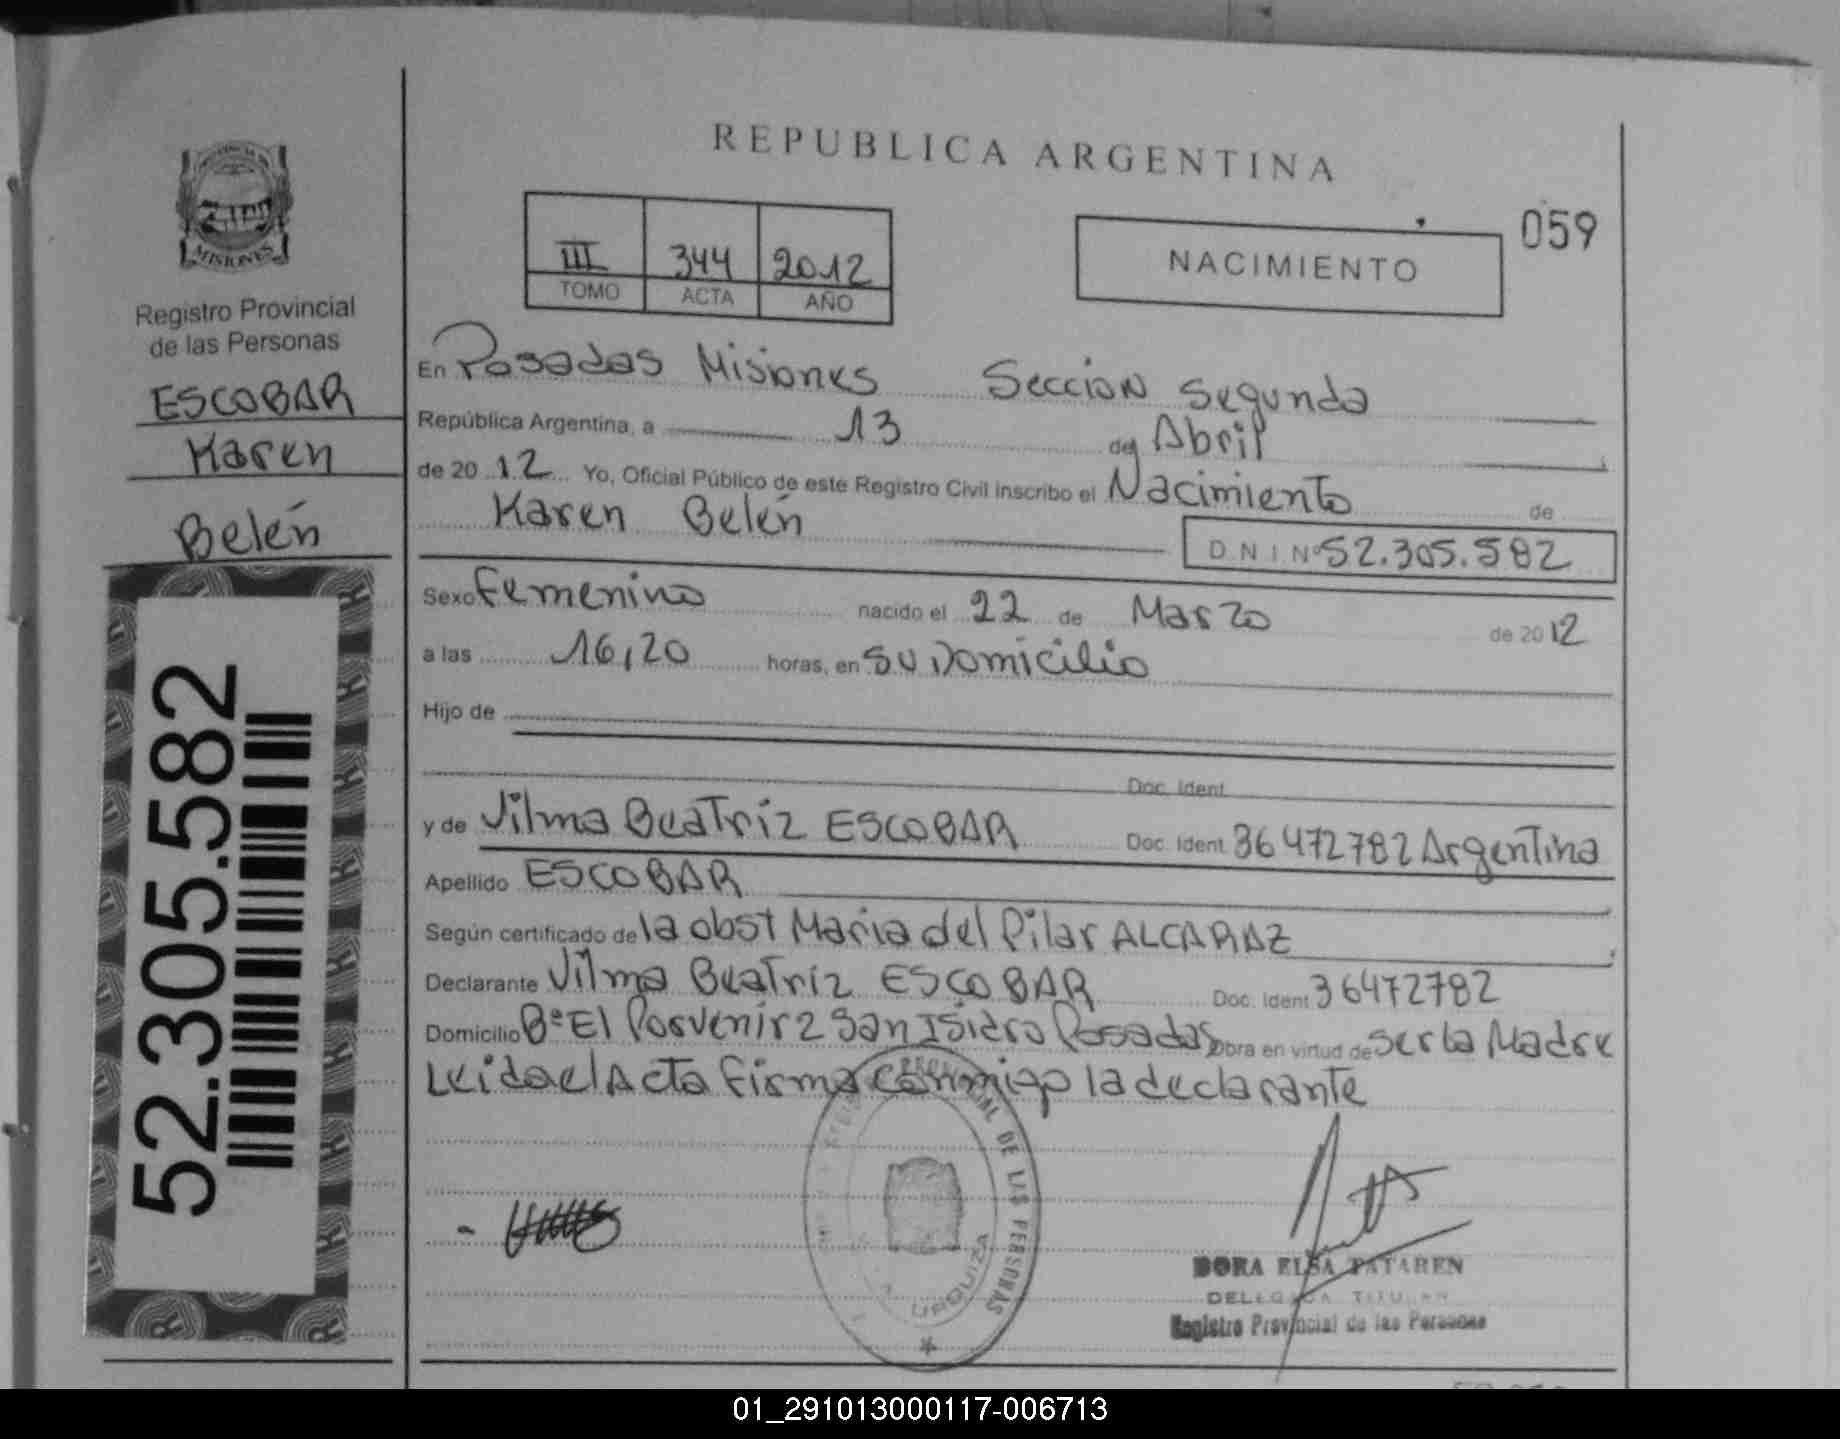 REPUBLICA ARGENTINA
059
NACIMIENTO
III 344 2012
TOMO ACTA AÑO
MISIONES
Registro Provincial
de las Personas
ESCOBAR
Karen
Belén
52.305.582
En Posadas Misiones Seccion Segunda
República Argentina, a 13 de Abril
de 20 12 Yo, Oficial Público de este Registro Civil inscribo el Nacimiento de
Karen Belén
D.N.I.Nº 52.305.582
Sexo Femenino nacido el 22 de Marzo de 20 12
a las 16,20 horas, en su Domicilio
Hijo de
Doc. Ident.
y de Vilma Beatriz ESCOBAR Doc. Ident. 36472782 Argentina
Apellido ESCOBAR
Según certificado de la obst Maria del Pilar ALCARAZ
Declarante Vilma Beatriz ESCOBAR Doc. Ident. 36472782
Domicilio Bº El Porvenir 2 San Isidro Posadas Obra en virtud de ser la Madre
Leida el Acta firma conmigo la declarante
DE LAS PERSONAS
URQUIZA
DORA ELSA PATAREN
DELEGADA TITULAR
Registro Provincial de las Personas
01_291013000117-006713